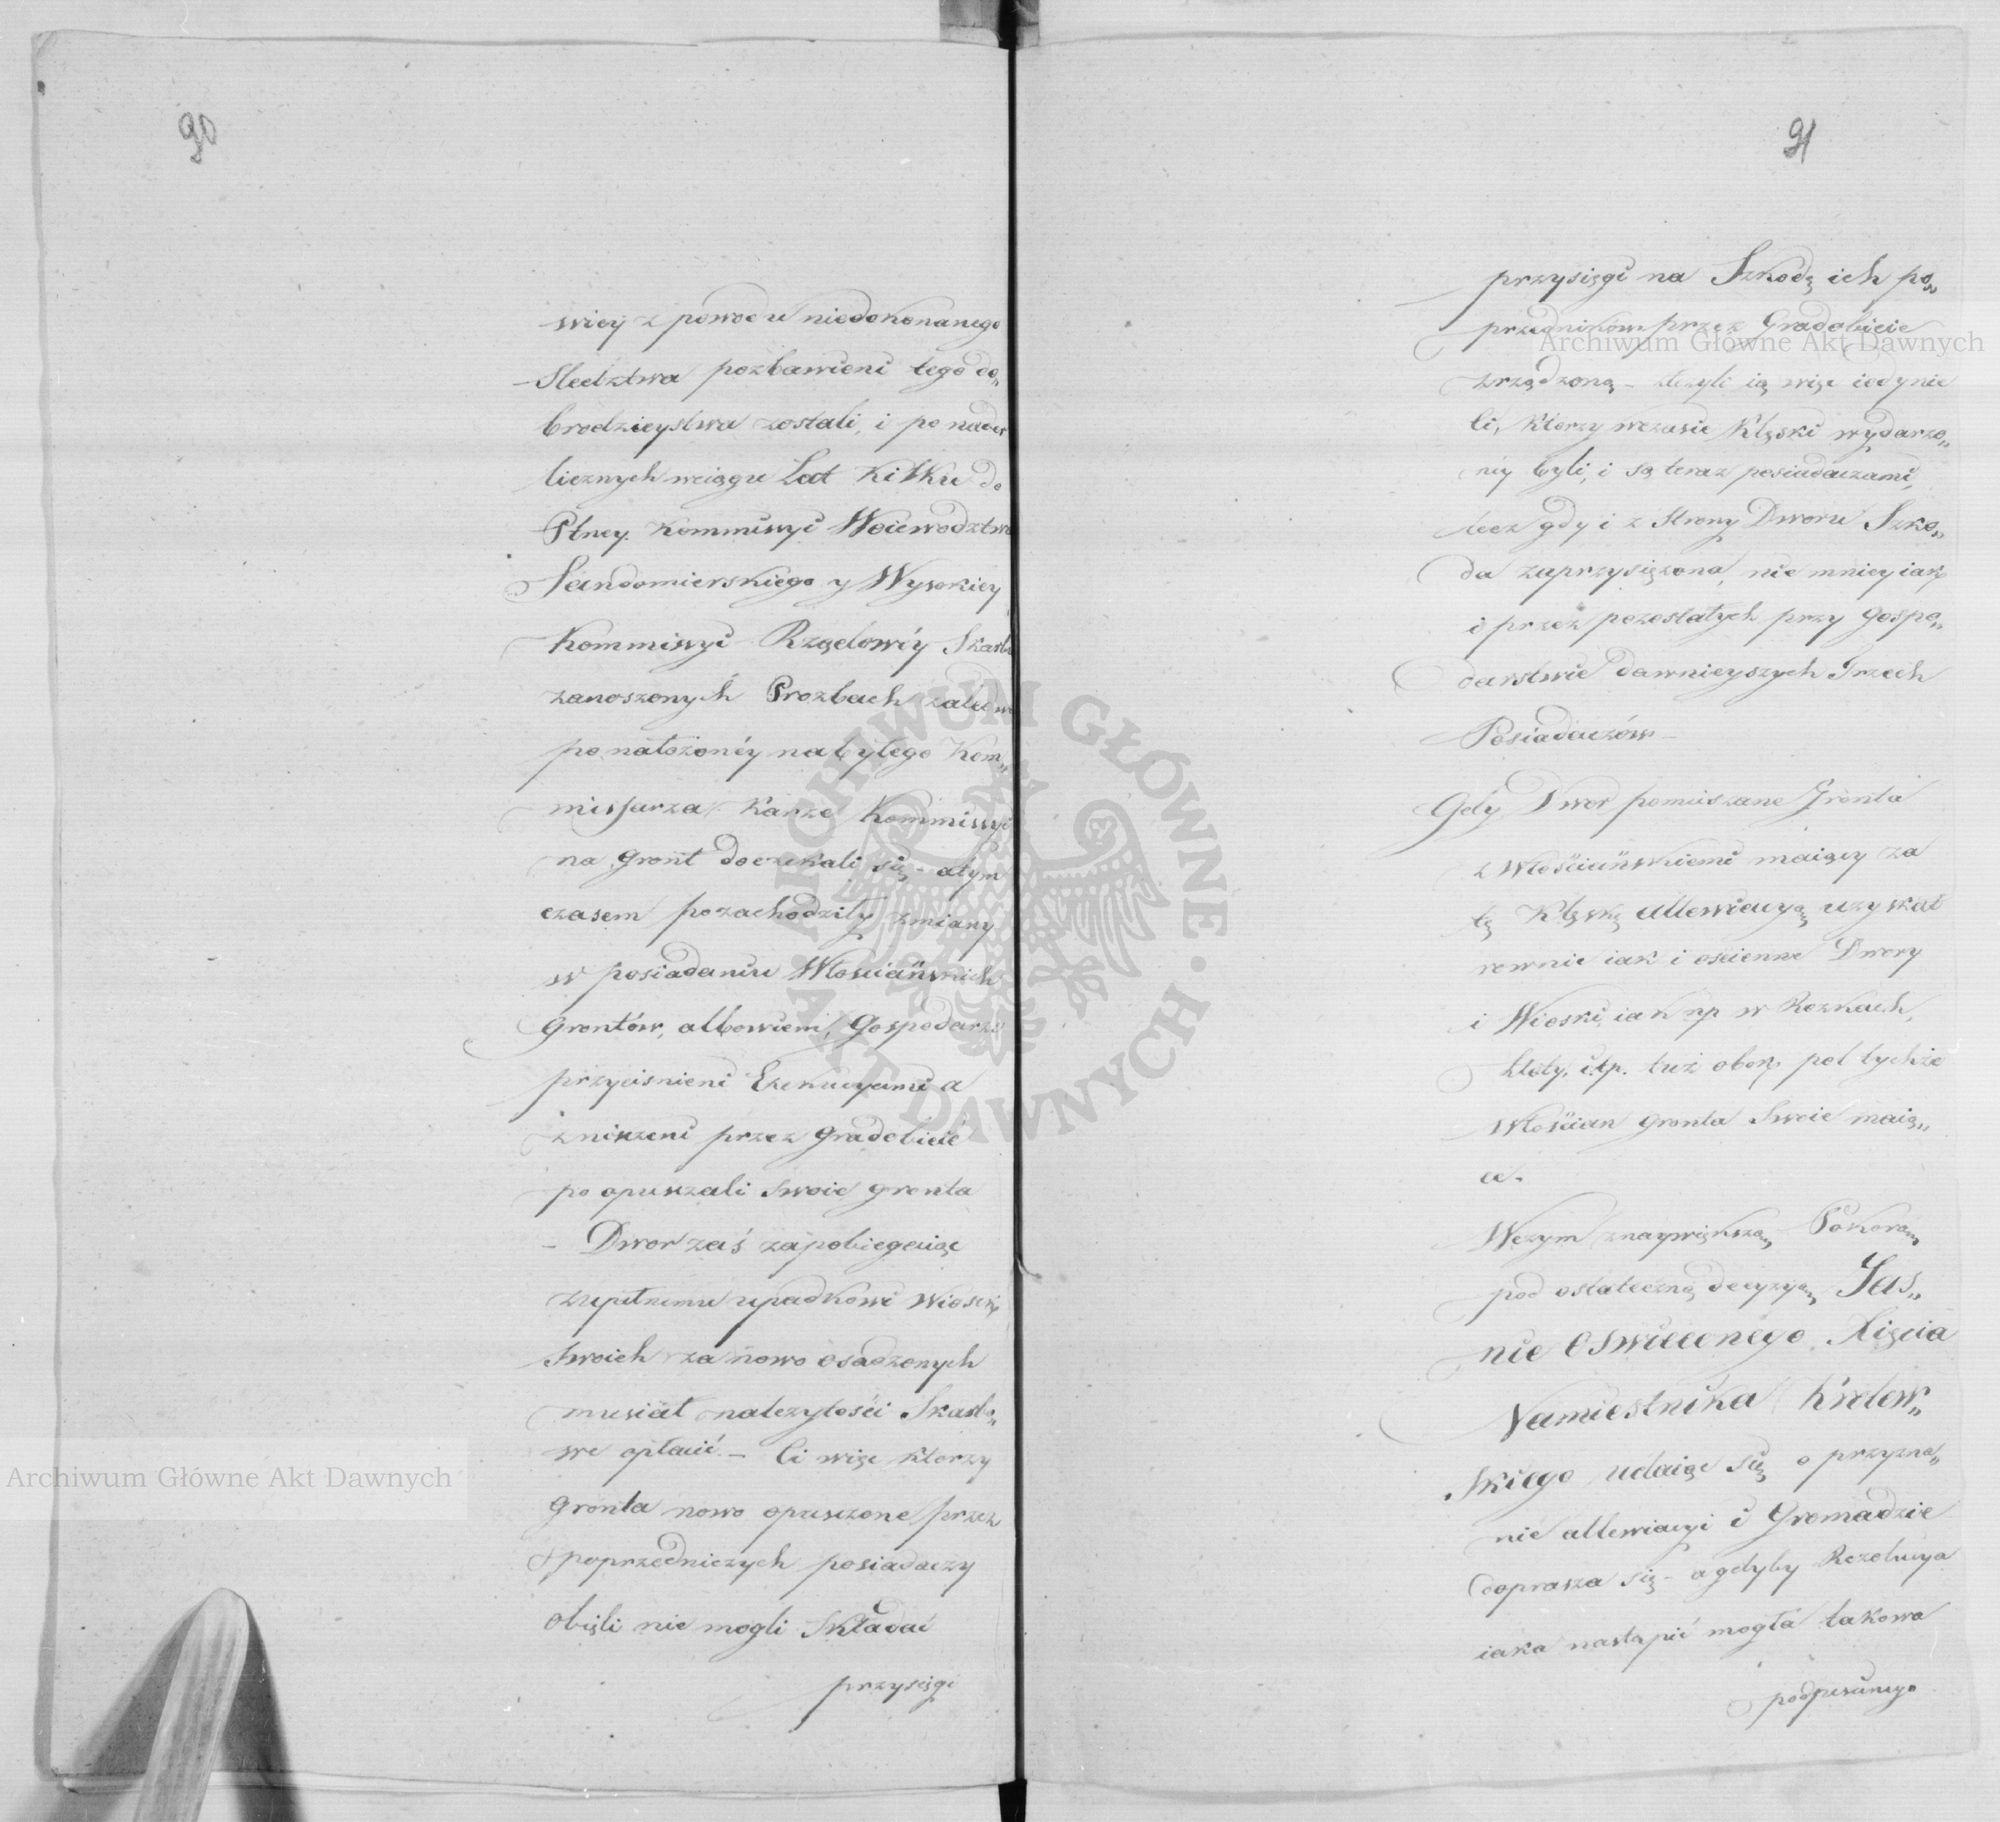 90
wiey z powodu niedokonanego
Sledztwa pozbawieni tego do„
brodzieystwa zostali, i po nader
licznych wciągu Lat Kilku do
Płney Kommissyi Woiewodztwa
Sandomierskiego y Wysokiey
Kommissyi Rządowéy Skarbu
zanoszonych Prozbach zaledwo
po nałożonéy na byłego Kom„
missarza Karze Kommissyi
na gront doczekali się – a tym
czasem pozachodziły zmiany
w posiadaniu Włosciańskich
Grontów, albowiem, Gospodarze
przyciśnieni Exekucyami a
zniszczeni przez gradobicie
po opuszczali swoie gronta
– Dwor zaś zapobiegaiąc
zupełnemu upadkowi Wiosek
swoich za nowo osadzonych
musiał należytości Skarbo„
we opłacić. – Ci więc ktorzy
gronta nowo opuszczone przez
poprzedniczych posiadaczy
obięli nie mogli Składać
przysięgi
91
przysięgi na Szkodę ich po„
przedników przez Gradobicie
zrządzoną – złożyli ią więc iedynie
Ci, Ktorzy wczasie Klęski wydarzo„
néy byli, i są teraz posiadaczami,
lecz gdy i z Strony Dworu Szko„
da zaprzysiężona, nie mniey iak
i przez pozostałych przy Gospo„
darstwie dawnieyszych Trzech
Posiadaczów –
Gdy Dwor pomieszane Gronta
z Włościańskiemi maiący za
tę Klęskę allewiacyą uzyskał
rownie iak i oscienne Dwory
i Wioski iak np w Rozkach,
itp. tuż obok pol tychże
Włościan gronta Swoie maią„
ce.
Wczym z naywiększą Pokorą
pod ostateczną decyzyą Jaś„
nie Oswieconego Xięcia
Namiestnika Królew„
skiego udaiąc się o przyzna„
nie allewiacyi i Gromadzie
doprasza się – a gdyby Rezolucya
iaka nastąpić mogła takowa
podpisanego
Archiwum Główne Akt Dawnych
Archiwum Główne Akt Dawnych
ARCHIWUM GŁÓWNE • AKT DAWNYCH •